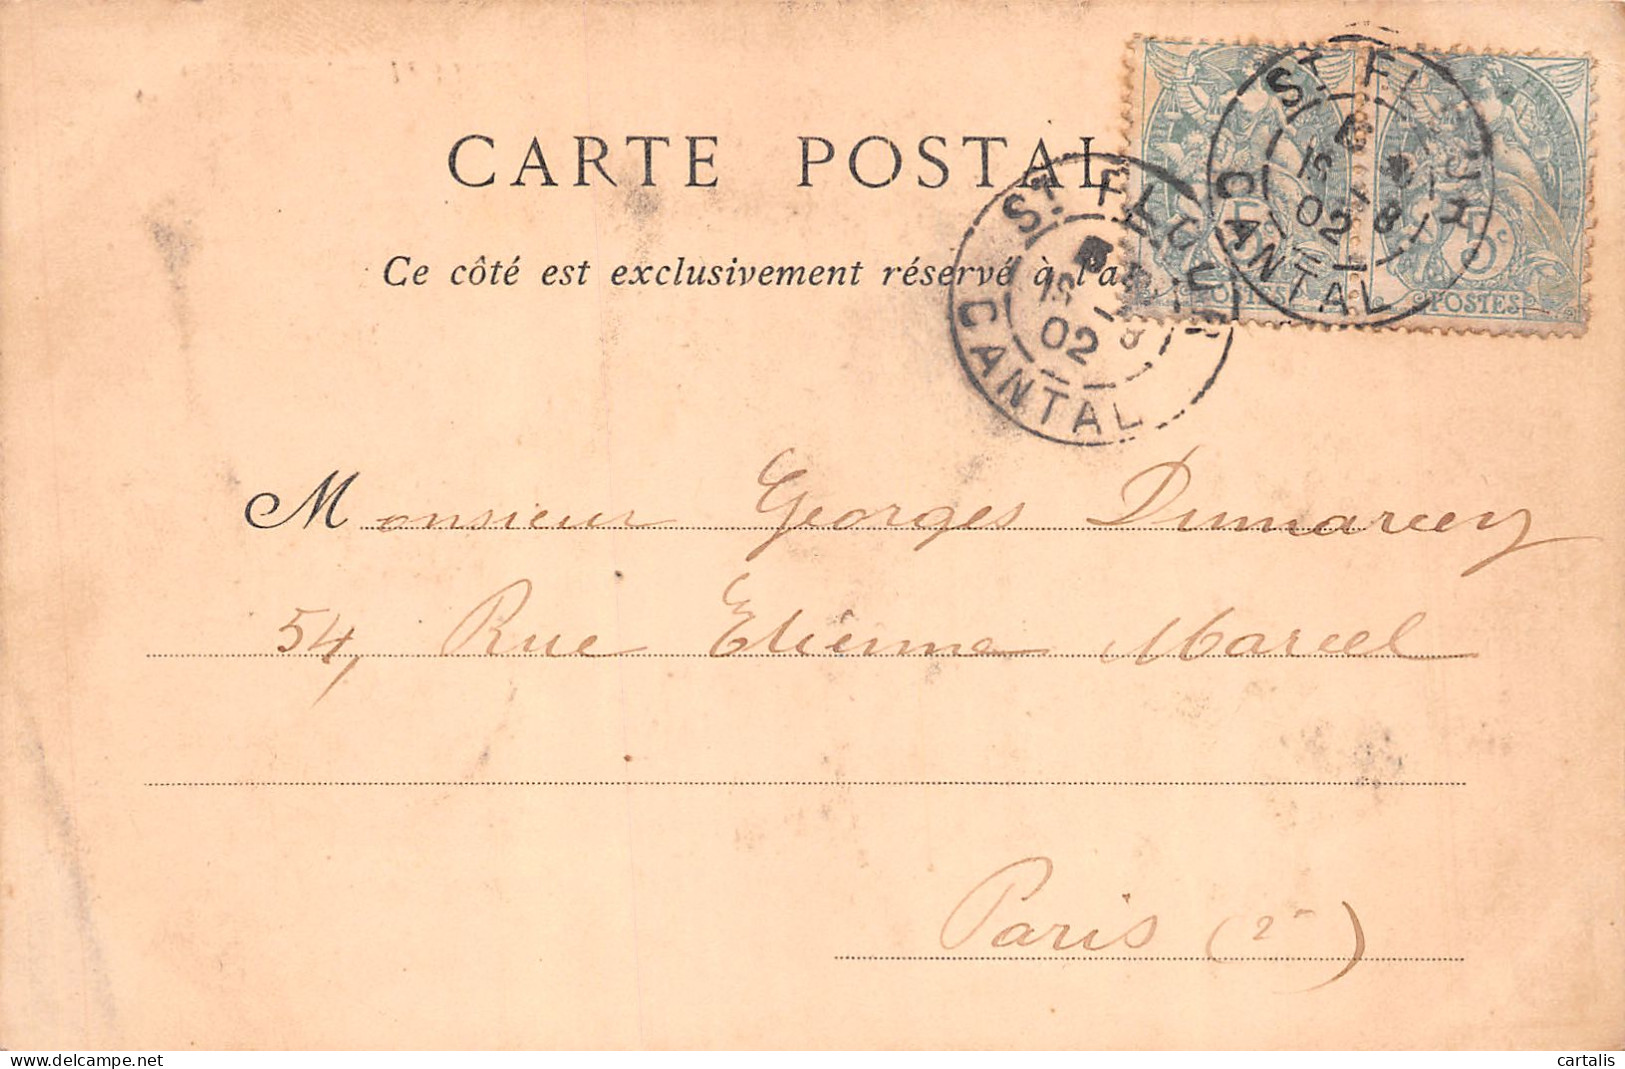 CARTE POSTAL
Ce côté est exclusivement réservé à l'a
ST FLOUR
15
8
02
CANTAL
ST FLOUR
15
8
02
CANTAL
5c
POSTES
5c
POSTES
Monsieur Georges Dumarcey
54, Rue Etienne Marcel
Paris (2e)
delcampe.net
cartalis